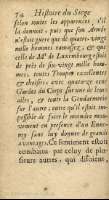 74 Histoire du Siege
selon toutes les apparences, s'il
la donnoit; puis que son armée
n'estoit guere que de quatre-vingt
mille hommes ramassez, & que
celle de Mr de Luxembourg estoit
de près de six-vingt mille hommes,
toutes Troupes excellentes
& choisies, avec quatorze cens
Gardes du Corps sur une de leurs
ailes, & toute la Gendarmerie
sur l'autre, outre qu'il estoit impossible
de faire le moindre mouvement
en presence d'un Ennemi
sans luy donner de grands
avantages. Ce sentiment estoit
combattu par celuy de plusieurs
autres, qui disoient,